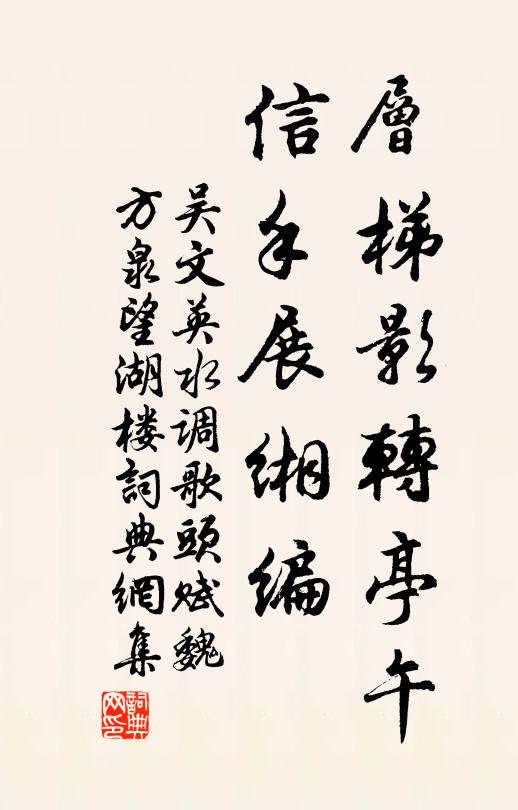 層梯影轉亭午
信手展緗編
吴文英水调歌頭赋魏
方泉望湖楼詞典網集
詞典网印